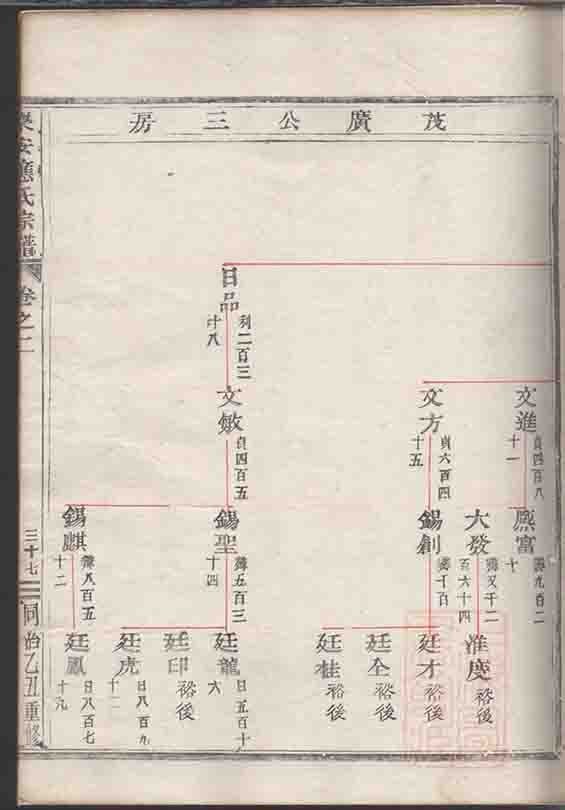 茂廣公三房
文進
貞四百八
十一
廌富
溥九百二
十
大發
溥又千二
百六十四
淮度
裕後
文方
貞六百四
十五
錫創
溥千百
廷才
裕後
廷全
裕後
廷桂
裕後
日品
利二百三
十八
文敏
貞四百五
錫聖
溥五百三
十四
廷龍
日五百十
六
廷印
裕後
廷虎
日八百九
十一
錫麒
溥八百五
十二
廷鳳
日八百七
十九
安應氏宗譜
卷之二
三十七
同治乙丑重修